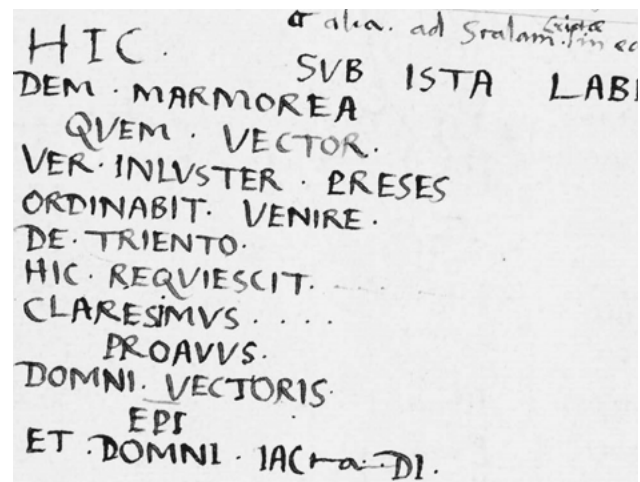 alia. ad Scalam. in
HIC. SVB ISTA LABI
DEM. MARMOREA
QVEM. VECTOR.
VER. INLVSTER. PRESES
ORDINABIT. VENIRE.
DE. TRIENTO.
HIC. REQVIESCIT.
CLARESIMVS....
PROAVVS.
DOMNI. VECTORIS.
EPI
ET. DOMNI. DI.